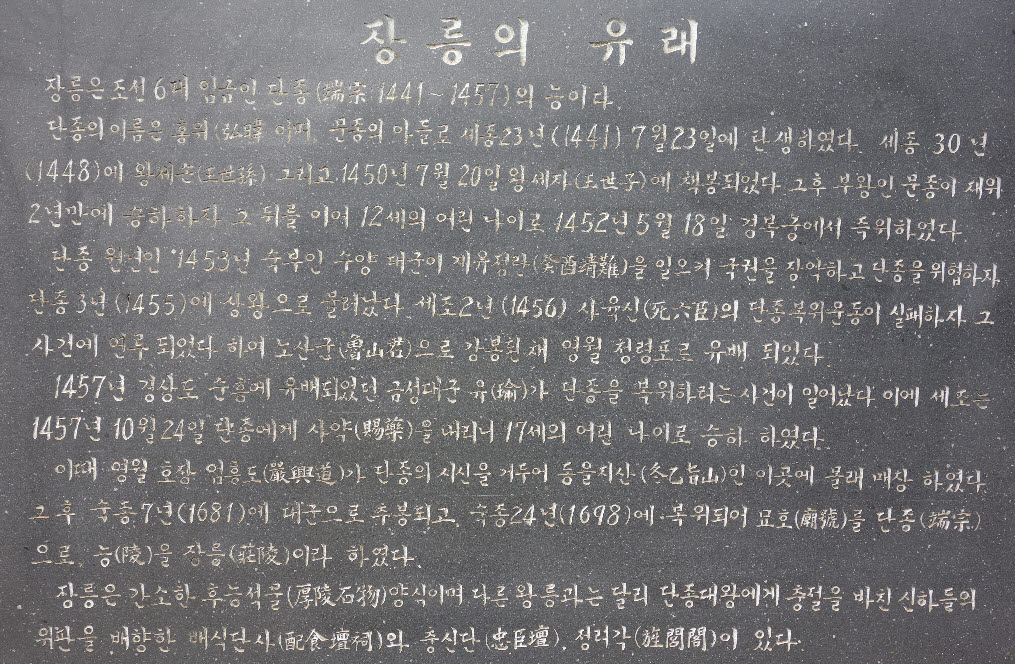 장릉의 유래
장릉은 조선 6대 임금인 단종(端宗 1441~1457)의 능이다.
단종의 이름은 홍위(弘暐)이며, 문종의 아들로 세종23년(1441) 7월23일에 탄생하였다. 세종 30년
(1448)에 왕세손(王世孫) 그리고 1450년 7월 20일 왕세자(王世子)에 책봉되었다 그후 부왕인 문종이 재위
2년만에 승하하자 그 뒤를 이어 12세의 어린 나이로 1452년 5월 18일 경복궁에서 즉위하였다.
단종 원년인 1453년 숙부인 수양 대군이 계유정란(癸酉靖難)을 일으켜 국권을 장악하고 단종을 위협하자,
단종3년(1455)에 상왕으로 물러났다. 세조2년(1456) 사육신(死六臣)의 단종복위운동이 실패하자 그
사건에 연루 되었다 하여 노산군(魯山君)으로 강봉된 채 영월 청령포로 유배 되었다
1457년 경상도 순흥에 유배되었던 금성대군 유(瑜)가 단종을 복위하려는 사건이 일어났다. 이에 세조는
1457년 10월 24일 단종에게 사약(賜藥)을 내리니 17세의 어린 나이로 승하 하였다.
이때 영월 호장 엄흥도(嚴興道)가 단종의 시신을 거두어 동을지산(冬乙旨山)인 이곳에 몰래 매장 하였다
그 후 숙종7년(1681)에 대군으로 추봉되고, 숙종24년(1698)에 복위되어 묘호(廟號)를 단종(端宗)
으로, 능(陵)을 장릉(莊陵)이라 하였다.
장릉은 간소한 후능석물(厚陵石物)양식이며 다른 왕릉과는 달리 단종대왕에게 충절을 바친 신하들의
위판을 배향한 배식단사(配食壇祠)와 충신단(忠臣壇), 정려각(旌閭閣)이 있다.